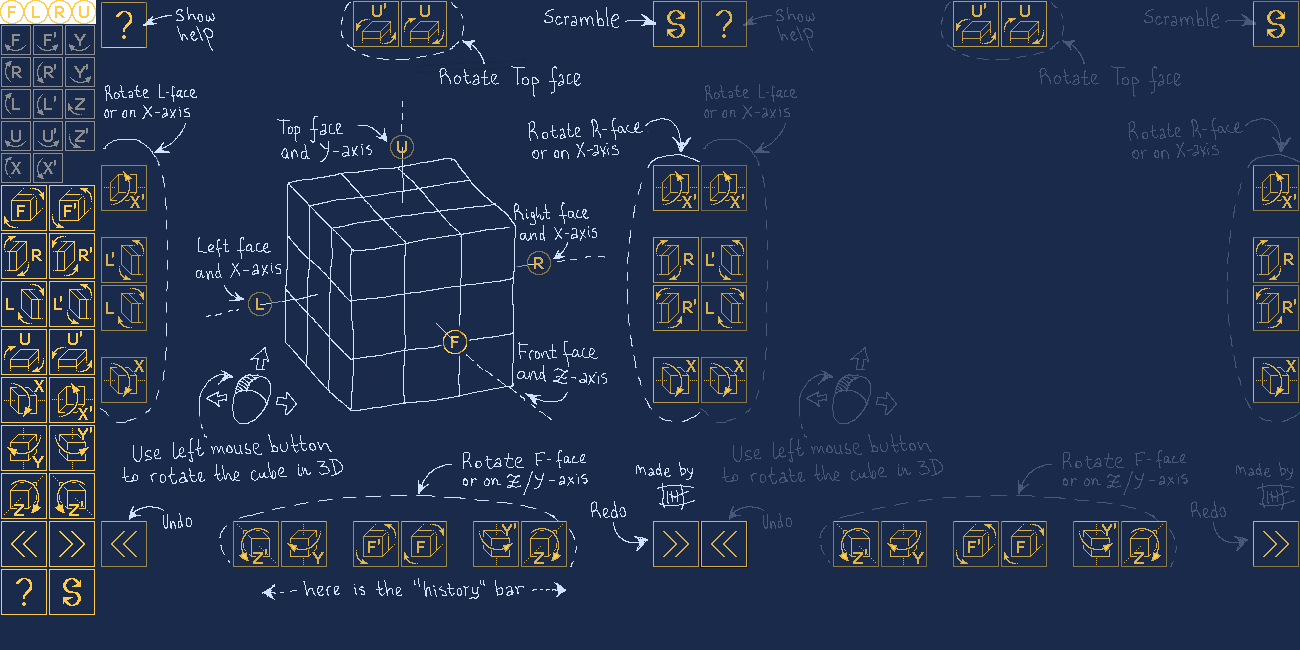 F L R U
F F' Y
R R' Y'
L L' Z
U U' Z'
X X'
F F'
R R'
L L'
U U'
X X'
Y Y'
Z Z'
<< >>
?
?
Show
help
U' U
Rotate Top face
Scramble
Rotate L-face
or on X-axis
X'
L'
L
X
Top face
and Y-axis
U
Left face
and X-axis
L
Right face
and X-axis
R
Front face
and Z-axis
F
Rotate R-face
or on X-axis
X'
R
R'
X
Use left mouse button
to rotate the cube in 3D
Rotate F-face
or on Z/Y-axis
made by
Undo
<<
Z' Y F' F Y' Z
Redo
>>
here is the "history" bar
?
Show
help
U' U
Rotate Top face
Scramble
Rotate L-face
or on X-axis
X'
L'
L
X
Rotate R-face
or on X-axis
X'
R
R'
X
Use left mouse button
to rotate the cube in 3D
Rotate F-face
or on Z/Y-axis
made by
Undo
<<
Z' Y F' F Y' Z
Redo
>>